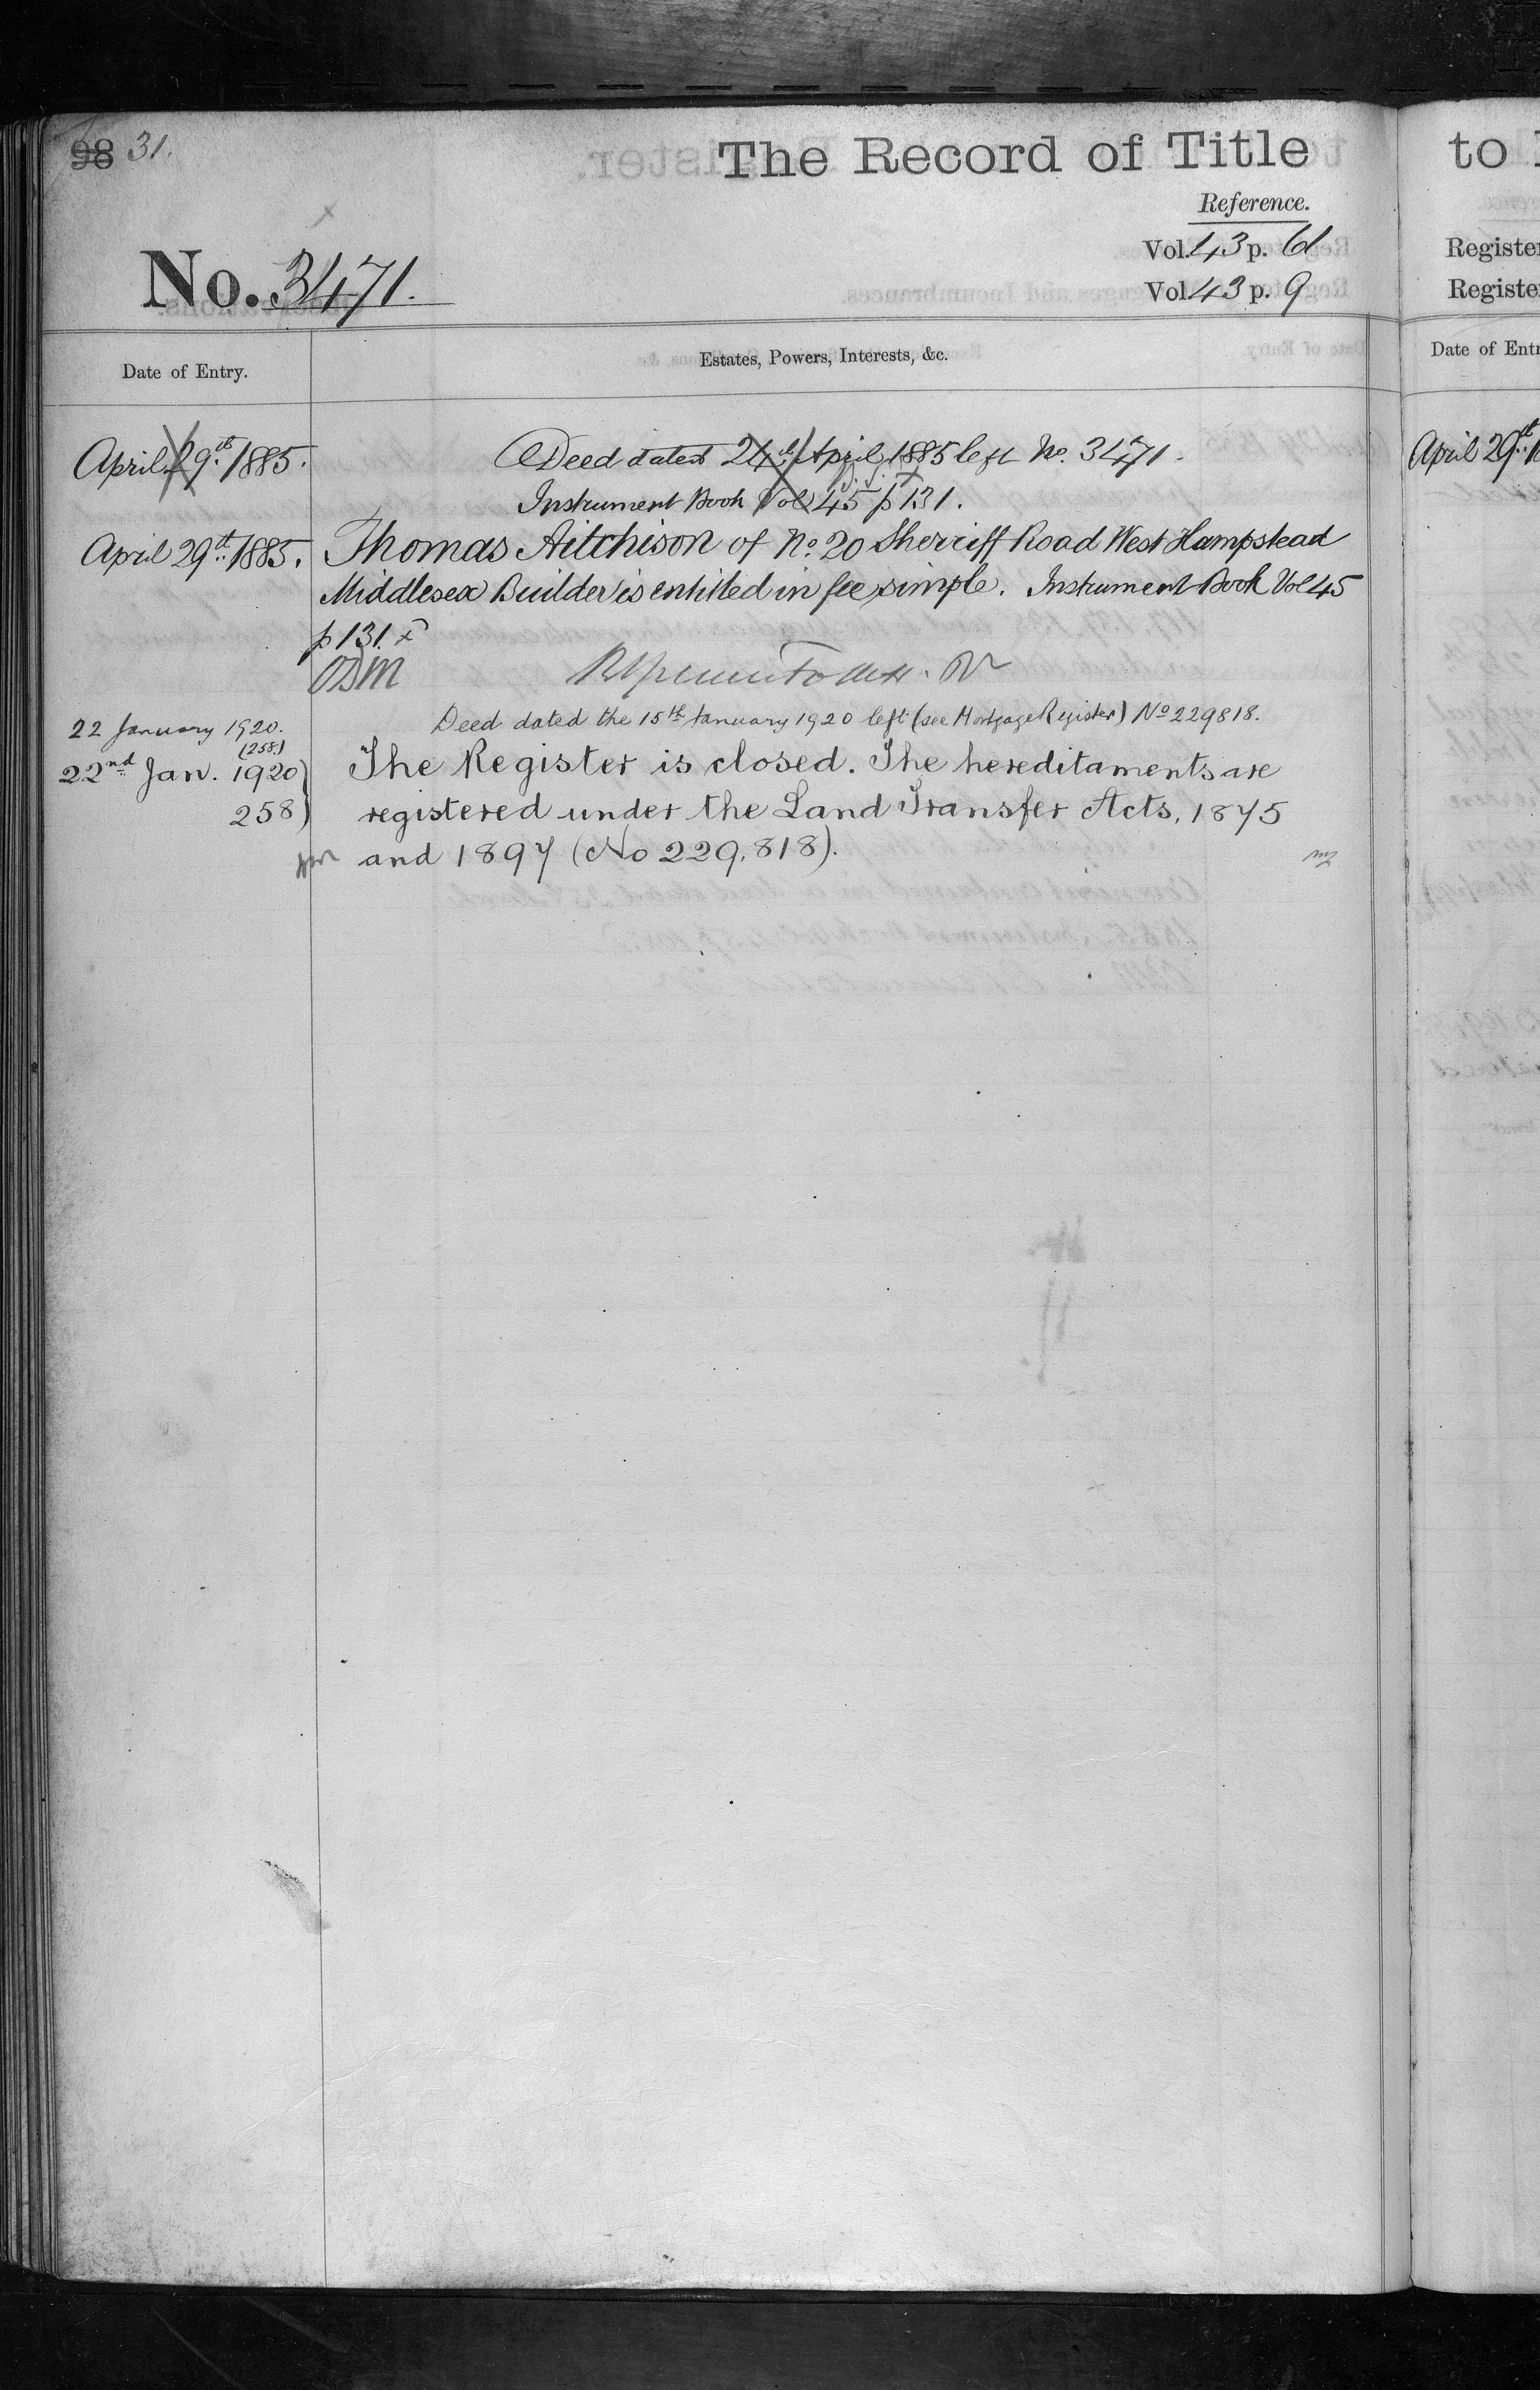 98 31.
The Record of Title
Reference.
Vol. 43 p. 61
No. 3471.
Vol. 43 p. 9
Date of Entry.
Estates, Powers, Interests, &c.
April 29th 1885.
Deed dated 24th April 1885 left No. 3471.
Instrument Book Vol 45 p 131.
April 29th 1885.
Thomas Aitchison of No. 20 Sherriff Road West Hampstead
Middlesex Builder is entitled in fee simple. Instrument Book Vol 45
p 131.
22 January 1920.
(258)
Deed dated the 15th January 1920 left (see Mortgage Register) No 229818.
22nd Jan. 1920
258
The Register is closed. The hereditaments are
registered under the Land Transfer Acts, 1875
and 1897 (No 229,818).
to
Register
Register
Date of Entr
April 29th